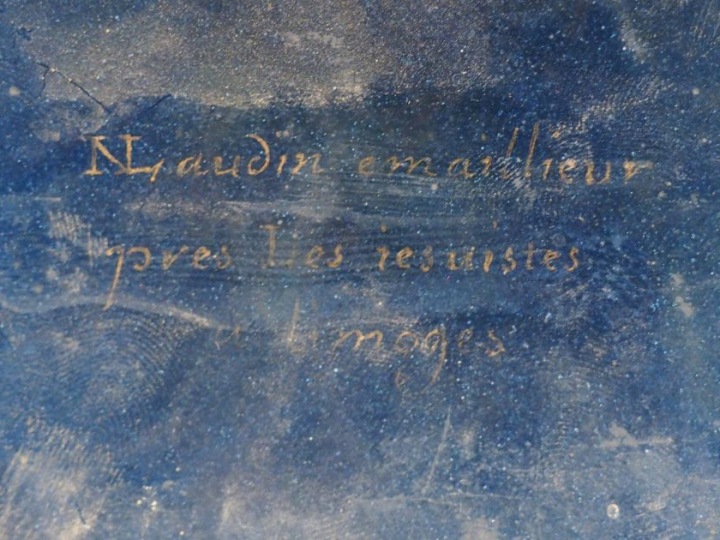 NLaudin emaillieur
pres Les iesuistes
a limoges